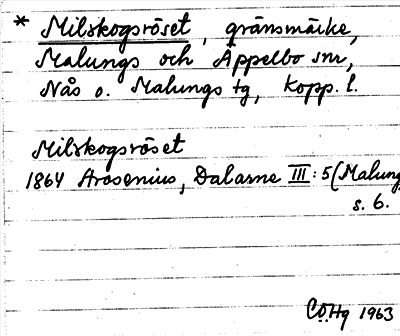 * Milskogsröset, gränsmärke,
Malungs och Äppelbo snr,
Nås o. Malungs tg, Kopp. l.
Milskogsröset
1864 Arosenius, Dalarne III: 5 (Malung
s. 6.
CÖHg 1963